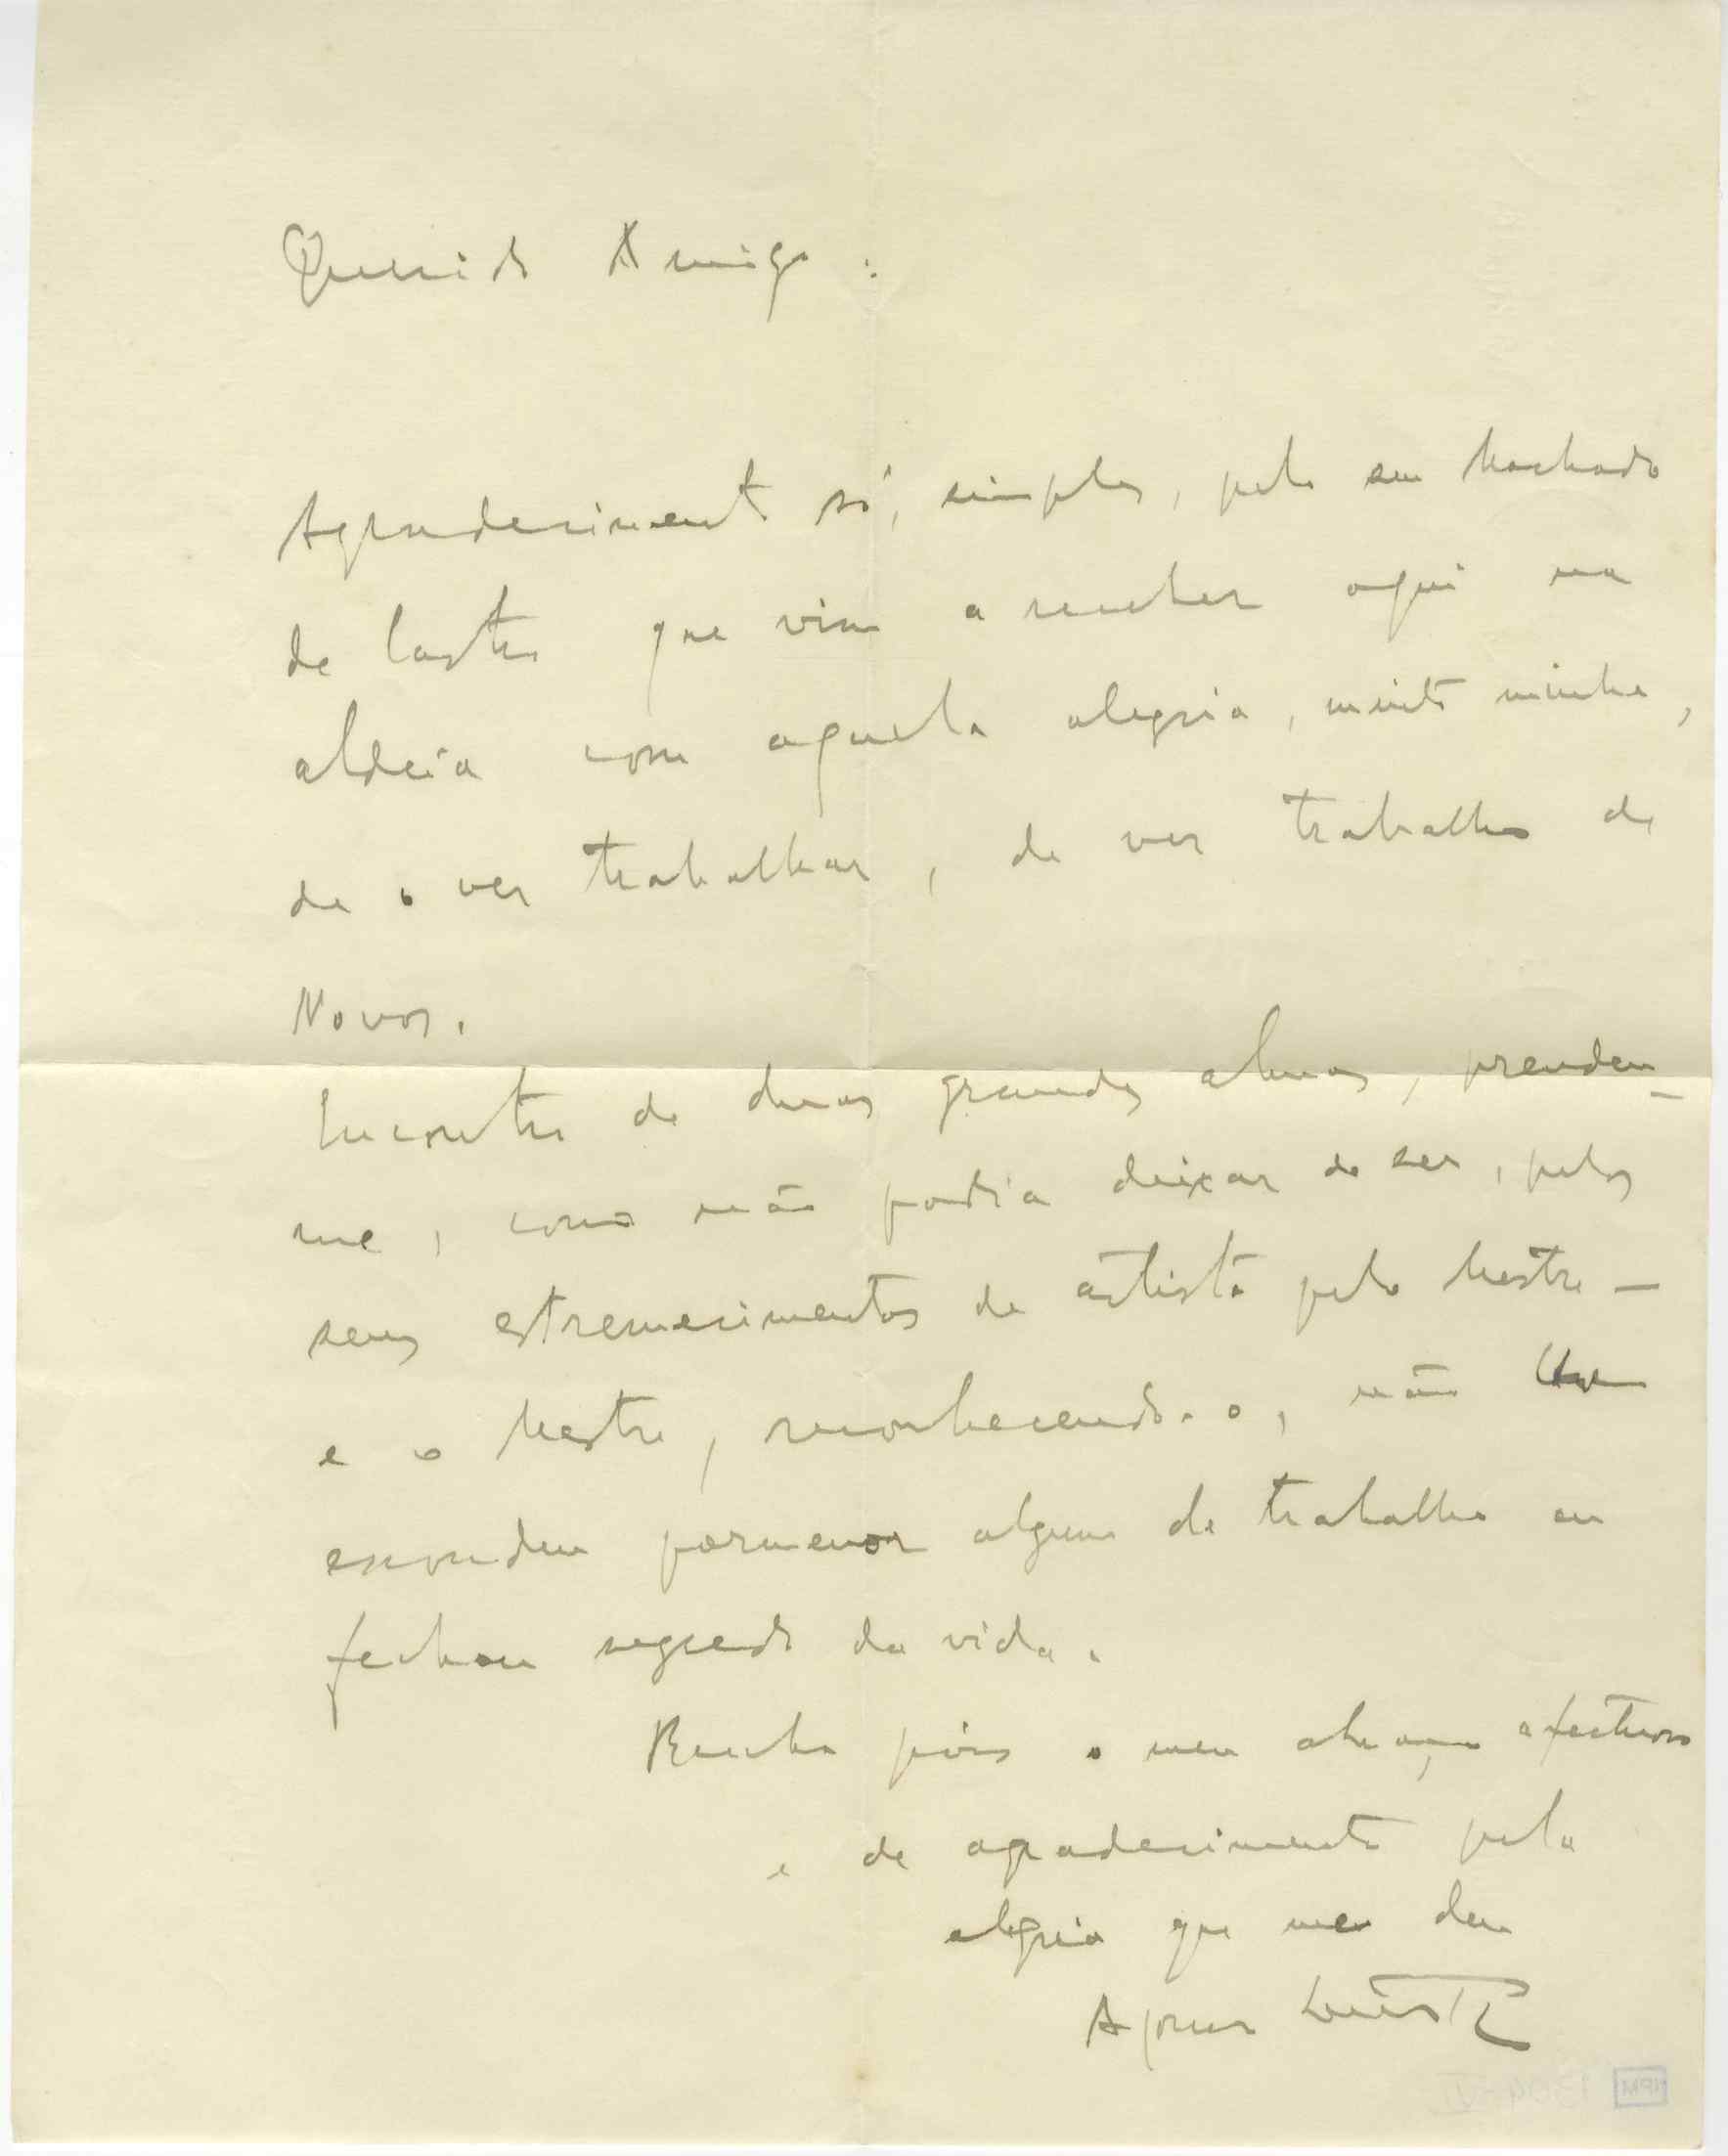 Querido Amigo:
Agradecimento só, simples, pelo seu Machado
de Castro que vim a receber aqui na
aldeia com aquela alegria, muito minha,
de o ver trabalhar, de ver trabalho de
Novos.
Encontro de duas grandes almas, prenden-
me, como não podia deixar de ser, pelos
seus estremecimentos de artista pelo Mestre —
e o Mestre, reconhecendo-o, não lhe
escondeu pormenor algum de trabalho ou
fechou segredo da vida.
Receba pois o meu abraço afectuoso
e de agradecimento pela
alegria que me deu